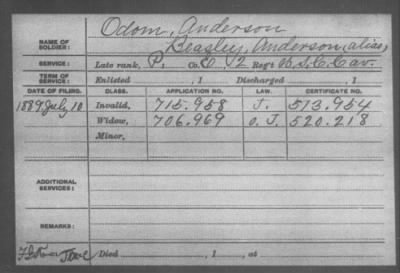 Odom, Anderson
NAME OF SOLDIER: Beasley, Anderson, alias,
SERVICE: Late rank, P, Co. 12 Reg't U.S.C.Cav.
TERM OF SERVICE: Enlisted , 1 Discharged , 1
DATE OF FILING. CLASS. APPLICATION NO. LAW. CERTIFICATE NO.
1889 July 10 Invalid, 715.958 J. 513.954
Widow, 706.969 O.J. 520.218
Minor,
ADDITIONAL SERVICES:
REMARKS:
Died , 1 , at